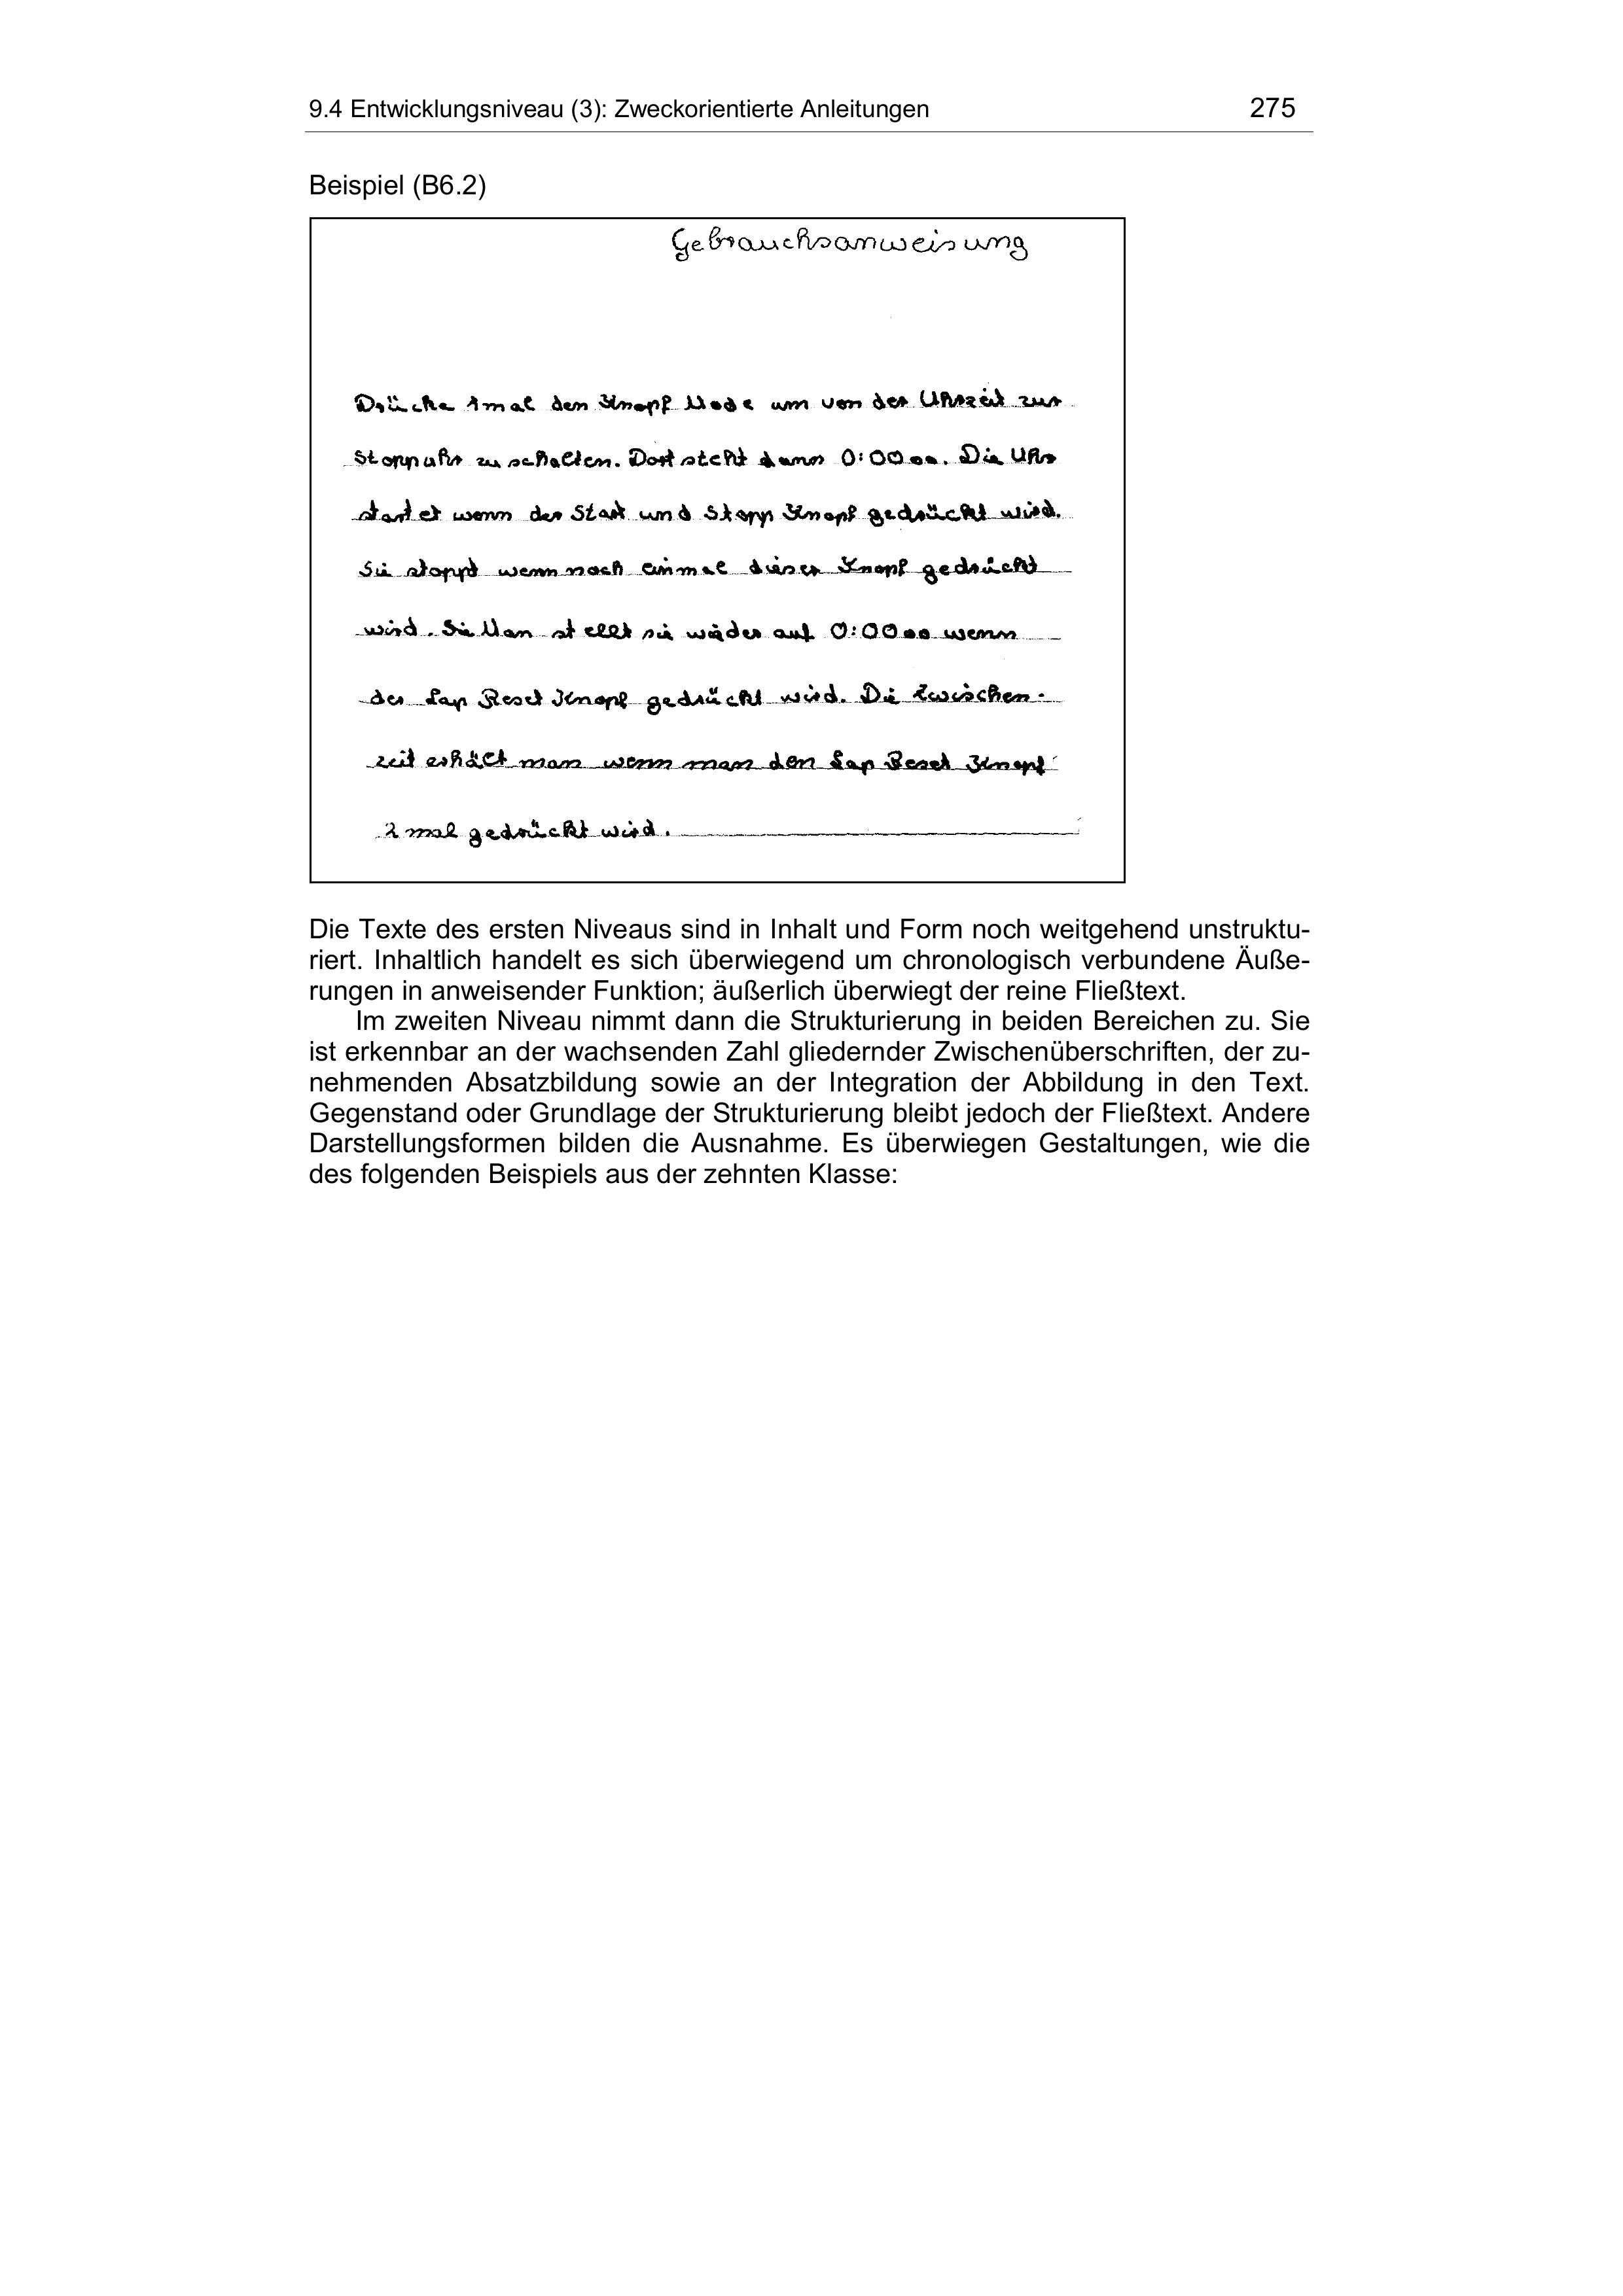 9.4 Entwicklungsniveau (3): Zweckorientierte Anleitungen 275
Beispiel (B6.2)
Gebrauchsanweisung
Drücke 1mal den Knopf Mode um von der Uhrzeit zur
Stoppuhr zu schalten. Dort steht dann 0:00 00. Die Uhr
startet wenn der Start und Stopp Knopf gedrückt wird.
Sie stoppt wenn noch einmal dieser Knopf gedrückt
wird. Sie Man stellt sie wieder auf 0:00 00 wenn
der Lap Reset Knopf gedrückt wird. Die Zwischen-
zeit erhält man wenn man den Lap Reset Knopf
2 mal gedrückt wird.
Die Texte des ersten Niveaus sind in Inhalt und Form noch weitgehend unstruktu-
riert. Inhaltlich handelt es sich überwiegend um chronologisch verbundene Äuße-
rungen in anweisender Funktion; äußerlich überwiegt der reine Fließtext.
Im zweiten Niveau nimmt dann die Strukturierung in beiden Bereichen zu. Sie
ist erkennbar an der wachsenden Zahl gliedernder Zwischenüberschriften, der zu-
nehmenden Absatzbildung sowie an der Integration der Abbildung in den Text.
Gegenstand oder Grundlage der Strukturierung bleibt jedoch der Fließtext. Andere
Darstellungsformen bilden die Ausnahme. Es überwiegen Gestaltungen, wie die
des folgenden Beispiels aus der zehnten Klasse: